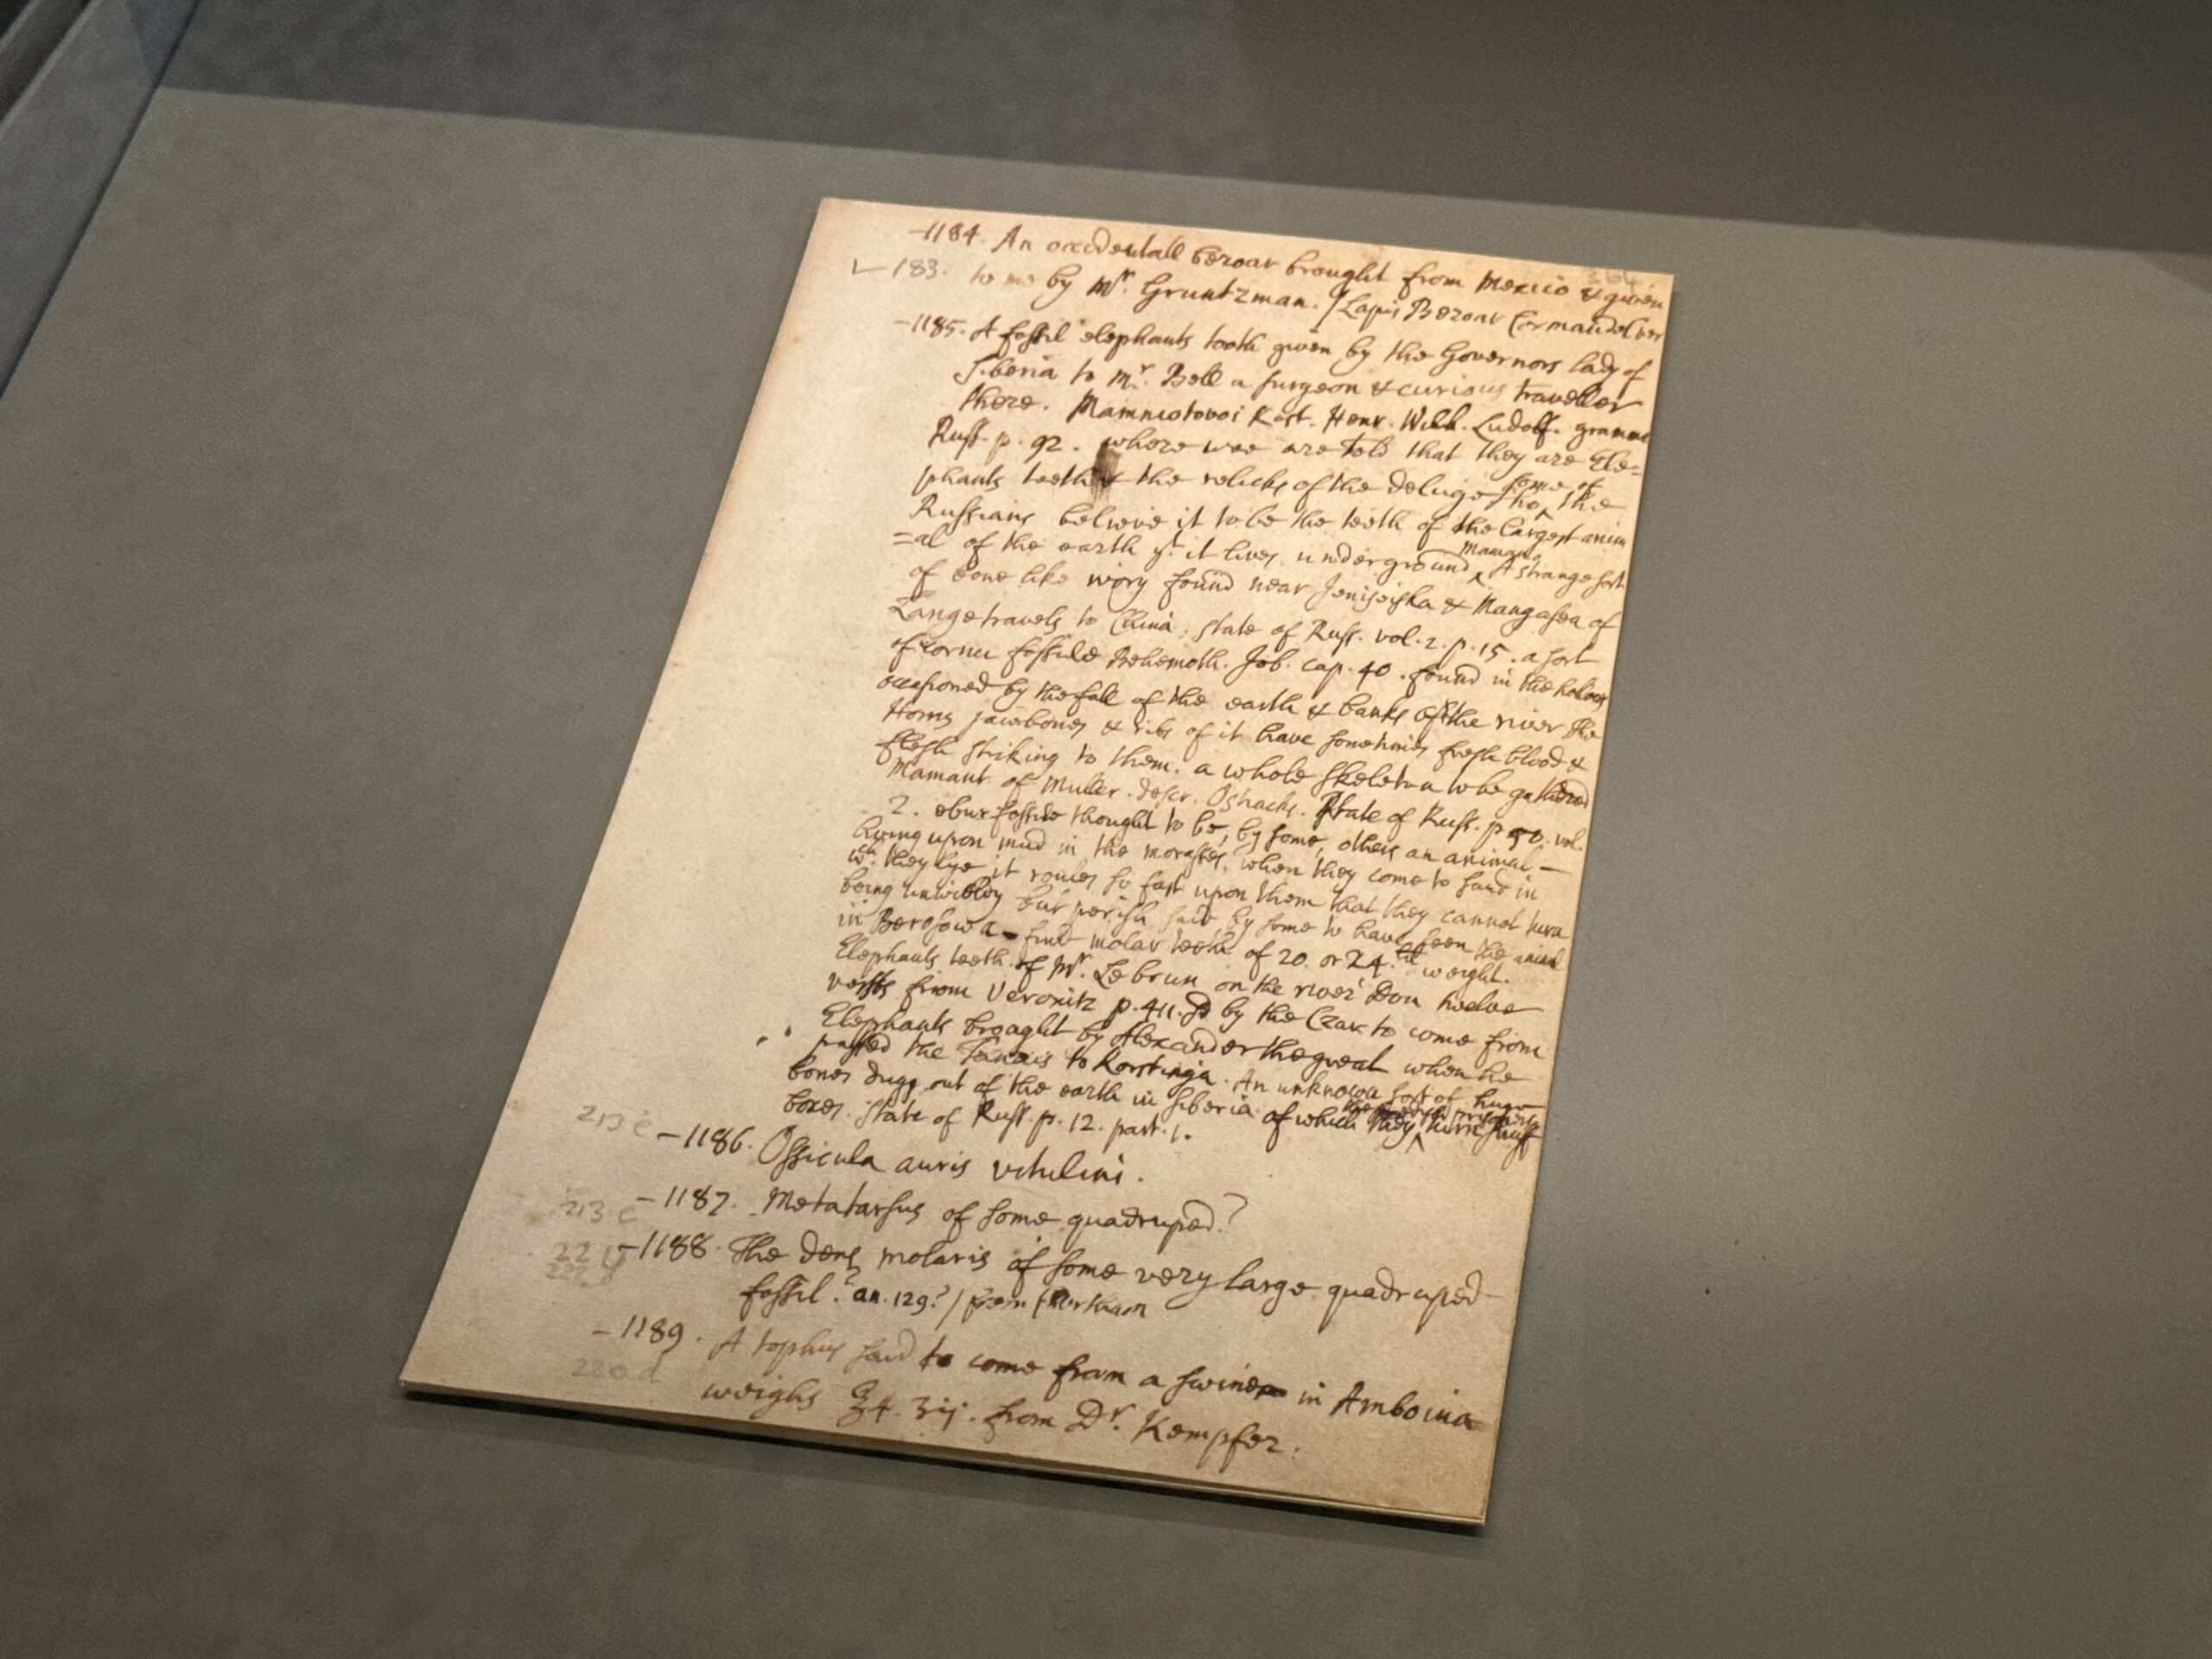 -1184. An occidentall bezoar brought from Mexico & given
183. to me by Mr. Gruntzman. / Lapis Bezoar
-1185. A fossil elephants tooth given by the Governors lady of
Siberia to Mr. Bell a surgeon & curious traveller
there. Mammotovoi Kost. Henr. Wilh. Ludolf. gramm
Russ. p. 92. where wee are told that they are Ele=
phants teeth & the relicks of the deluge tho some of the
Russians beleive it to be the teeth of the largest anim
=al of the earth yt. it lives underground Mamant A strange sort
of bone like ivory found near Jeniseiska & Mangasea of
Lange travels to China, state of Russ. vol. 2. p. 15. a sort
of cornu fossile Behemoth. Job. cap. 40. found in the holows
occasioned by the fall of the earth & banks of the river The
Horns jawbones & ribs of it have sometimes fresh blood &
flesh sticking to them. a whole skeleton to be gathered
Mamant of Muller. descr. Ostiacks. State of Russ. p 50. vol.
2. ebur fossile thought to be, by some, others an animal
living upon mud in the morasses, when they come to sand in
wch. they lye it roules so fast upon them that they cannot turn
being unwieldy but perish said by some to have been the
in Beresowa - find molar teeth of 20. or 24. weight.
Elephants teeth of Mr. Le brun on the river Don twelve
versts from Veronitz p. 411. by the Czar to come from
Elephants brought by Alexander the great when he
passed the Tanais to Korstinja. An unknown sort of huge
bones dugg out of the earth in Siberia of which they turn snuff
boxes. State of Russ. p. 12. part. 1.
213 c -1186. Ossicula auris vitulini.
213 c -1187. Metatarsus of some quadruped.?
-1188. The dens molaris of some very large quadruped
fossil.? an. 129? / from
-1189. A tophus said to come from a swine in Amboina
220 d weighs ℥4. ʒij. from Dr. Kempfer.